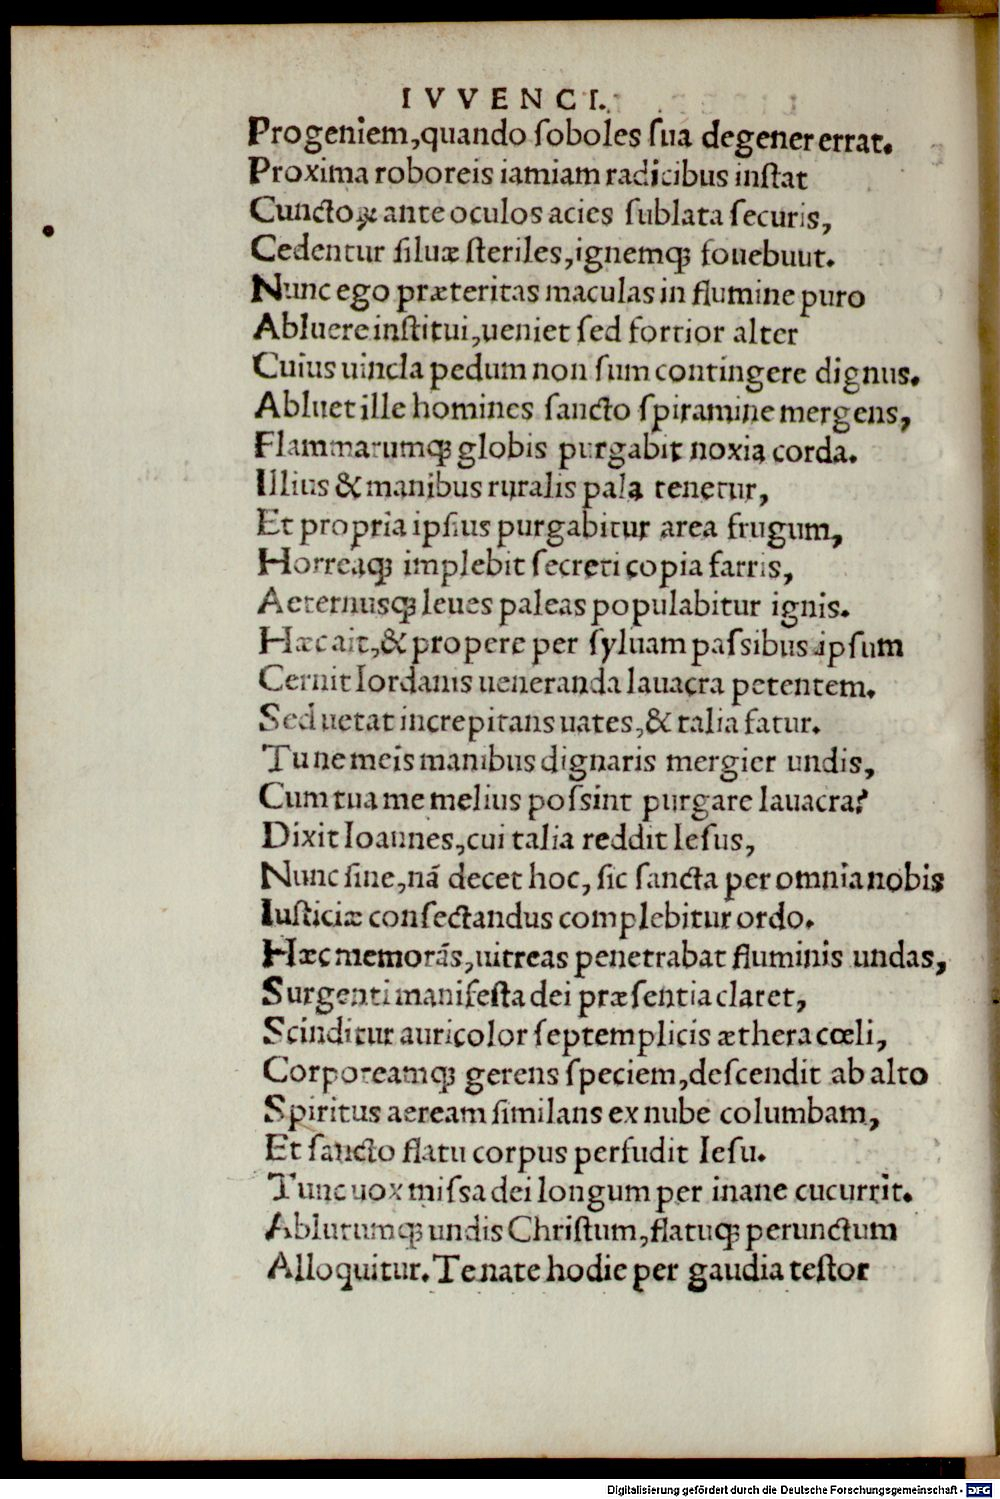 IVVENCI.
Progeniem,quando ſoboles ſua degener errat.
Proxima roboreis iamiam radicibus inſtat
Cunctoꝝ ante oculos acies ſublata ſecuris,
Cedentur ſiluæ ſteriles,ignemq́ꝫ fouebuut.
Nunc ego præteritas maculas in flumine puro
Abluere inſtitui,ueniet ſed fortior alter
Cuius uincla pedum non ſum contingere dignus.
Abluet ille homines ſancto ſpiramine mergens,
Flammarumqꝫ globis purgabit noxia corda.
Illius & manibus ruralis pala tenetur,
Et propria ipſius purgabitur area frugum,
Horreaqꝫ implebit ſecreti copia farris,
Aeternusqꝫ leues paleas populabitur ignis.
Hæc ait,& propere per ſyluam paſsibus ipſum
Cernit Iordanis ueneranda lauacra petentem.
Sed uetat increpitans uates,& talia fatur.
Tu ne meis manibus dignaris mergier undis,
Cum tua me melius poſsint purgare lauacra?
Dixit Ioannes,cui talia reddit Ieſus,
Nunc ſine,nã decet hoc, ſic ſancta per omnia nobis
Iuſticiæ conſectandus complebitur ordo.
Hæc memorãs,uitreas penetrabat fluminis undas,
Surgenti manifeſta dei præſentia claret,
Scinditur auricolor ſeptemplicis æthera cœli,
Corpoream qꝫ gerens ſpeciem,deſcendit ab alto
Spiritus aeream ſimilans ex nube columbam,
Et ſancto flatu corpus perfudit Ieſu.
Tunc uox miſſa dei longum per inane cucurrit.
Ablutumqꝫ undis Chriſtum,flatuqꝫ perunctum
Alloquitur. Te nate hodie per gaudia teſtor
Digitalisierung gefördert durch die Deutsche Forschungsgemeinschaft - DFG